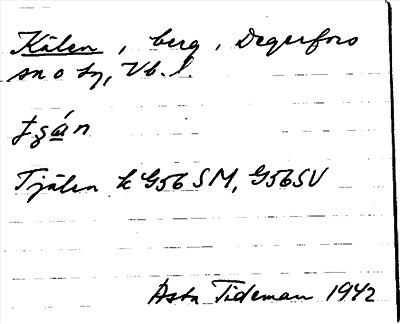 Kålen, berg, Degerfors
sn o sg, Vb. l.
Tjålen k G56 SM, G56SV
Asta Tideman 1942